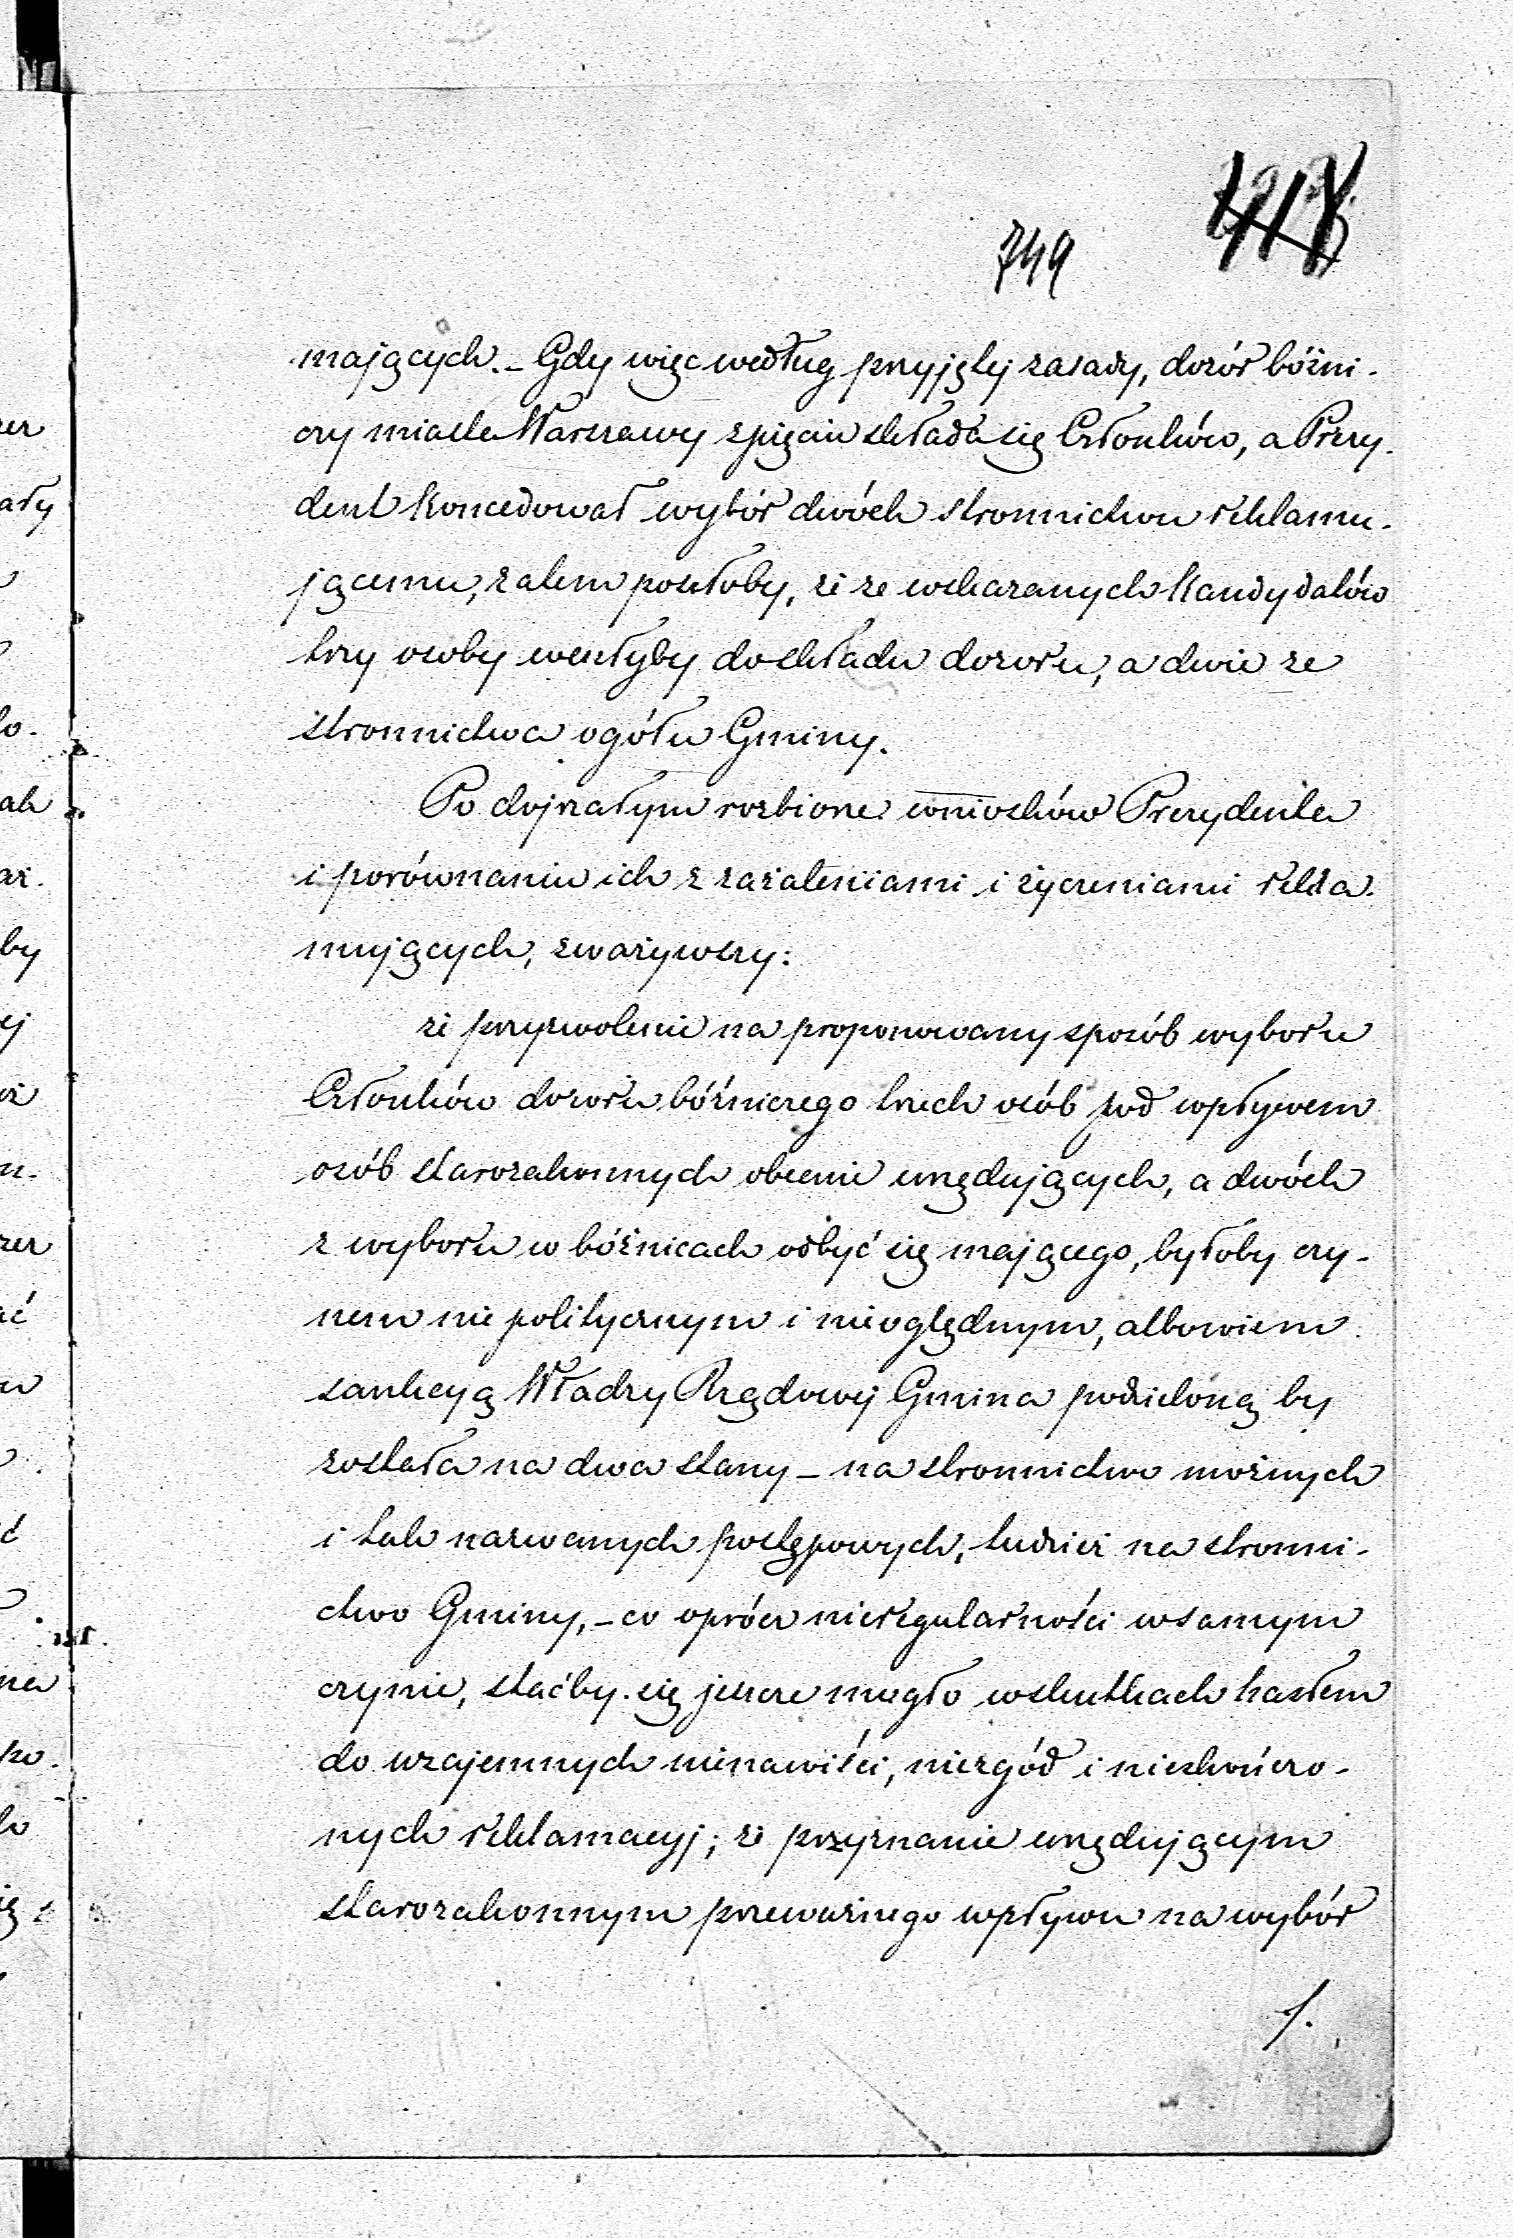 749
mających. – Gdy więc według przyjętej zasady, dozór bóżni-
czy miasta Warszawy z pięciu składa się Członków, a Prezy-
dent koncedował wybór dwóch stronnictwu reklamu-
jącemu, zatem poszłoby, że ze wskazanych Kandydatów
trzy osoby weszłyby do składu dozoru, a dwie ze
stronnictwa ogółu Gminy.
Po dojrzałym rozbiorze wniosków Prezydenta
i porównaniu ich z zażaleniami i życzeniami rekla-
mujących, zważywszy:
że przyzwolenie na proponowany sposób wyboru
Członków dozoru bóźniczego trzech osób pod wpływem
osób starozakonnych obecnie urzędujących, a dwóch
z wyboru w bóżnicach odbyć się mającego, byłoby czy-
nem nie politycznym i nieoględnym, albowiem
sankcyą Władzy Rządowej Gmina podzieloną by
została na dwa stany – na stronnictwo możnych
i tak nazwanych postępowych, tudzież na stronni-
ctwo Gminy, – co oprócz nieregularności w samym
czynie, stać by się jeszcze mogło w skutkach hasłem
do wzajemnych nienawiści, niezgód i nieskończo-
nych reklamacyj; że przyznanie urzędującym
starozakonnym przeważnego wpływu na wybór